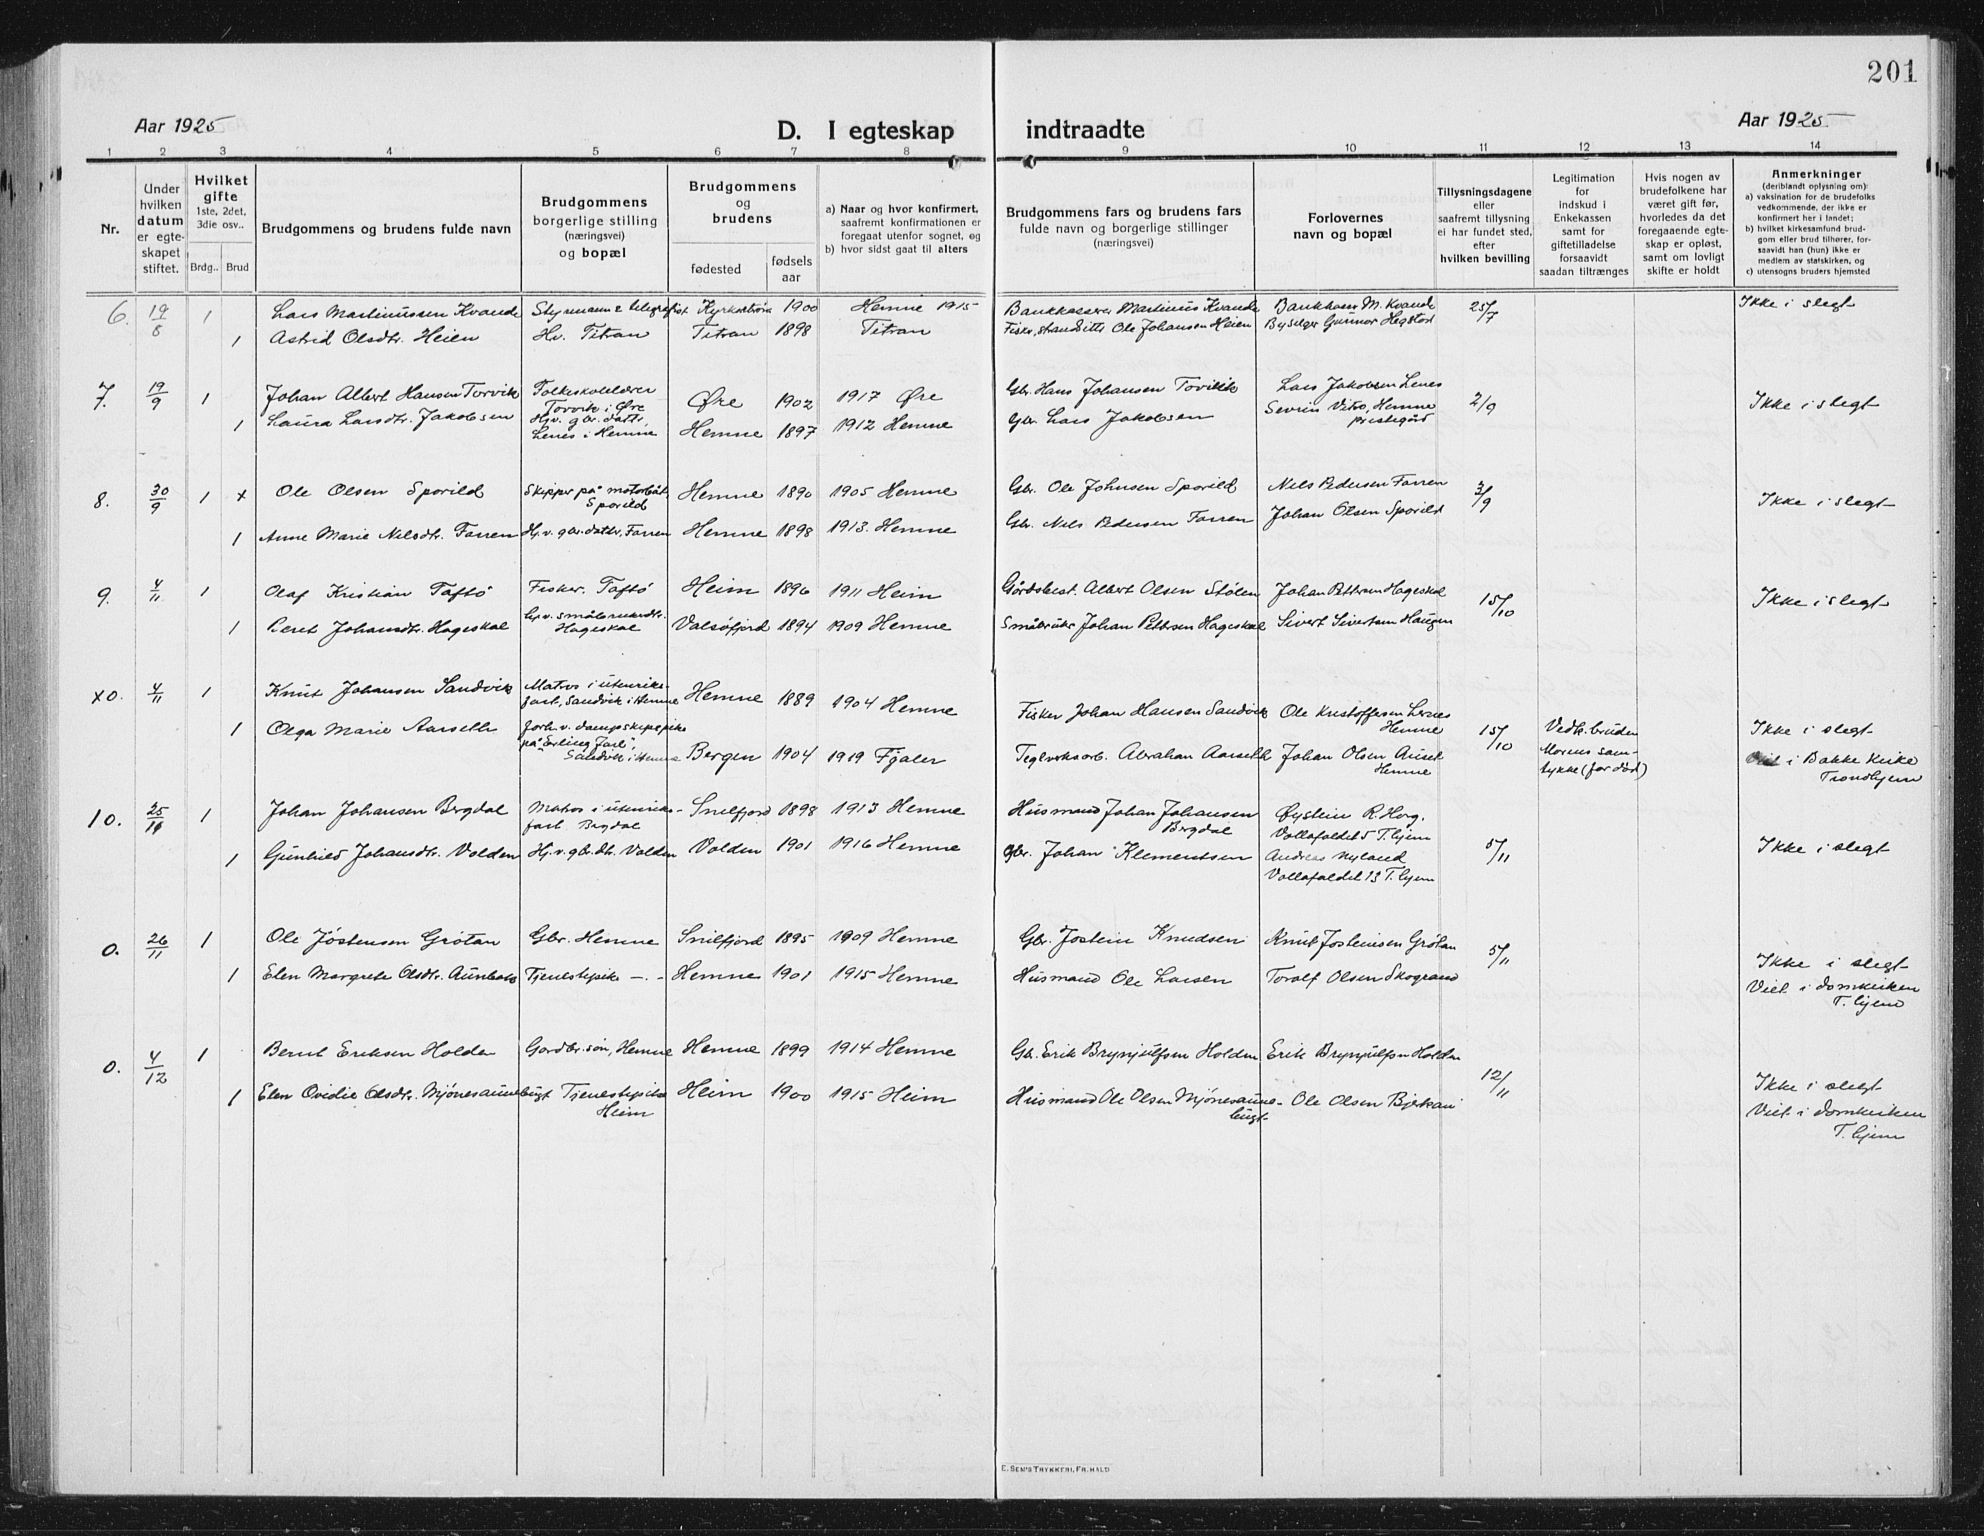 201
Aar 1925
D. I egteskap indtraadte
Aar 1925
1 2 3 4 5 6 7 8 9 10 11 12 13 14
Nr.
Under
hvilken
datum
er egte-
skapet
stiftet.
Hvilket
gifte
1ste, 2det,
3die osv..
Brdg.. Brud
Brudgommens og brudens fulde navn
Brudgommens
borgerlige stilling
(næringsvei)
og bopæl
Brudgommens
og
brudens
fødested
fødsels
aar
a) Naar og hvor konfirmert,
saafremt konfirmationen er
foregaat utenfor sognet, og
b) hvor sidst gaat til alters
Brudgommens fars og brudens fars
fulde navn og borgerlige stillinger
(næringsvei)
Forlovernes
navn og bopæl
Tillysningsdagene
eller
saafremt tillysning
ei har fundet sted,
efter
hvilken bevilling
Legitimation
for
indskud i
Enkekassen
samt for
giftetilladelse
forsaavidt
saadan tiltrænges
Hvis nogen av
brudefolkene har
været gift før,
hvorledes da det
foregaaende egte-
skap er opløst,
samt om lovligt
skifte er holdt
Anmerkninger
(deriblandt oplysning om):
a) vaksination for de brudefolks
vedkommende, der ikke er
konfirmert her i landet;
b) hvilket kirkesamfund brud-
gom eller brud tilhører, for-
saavidt han (hun) ikke er
medlem av statskirken, og
c) utensogns bruders hjemsted
6. 19/8 1 Lars Martinussen Kvande Styrmann & telegrafist 1900 Hemne 1915 Bankkasserer Martinus Kvande Bankkaser M. Kvande 25/7 Ikke i slegt
1 Astrid Olsdtr. Heien Hv. Titran Titran 1898 Titran Ole Johansen Heien Gunnar Hegstad
7. 19/9 1 Johan Albert Hansen Torvik Folkeskolelærer
Torvik i Øre Øre 1902 1917 Øre Gbr. Hans Johansen Torvik Lars Jakobsen Lenes 2/9 Ikke i slegt
1 Laura Larsdtr. Jakobsen Hjv. gbr. datter,
Lenes i Hemne Hemne 1897 1912 Hemne Gbr. Lars Jakobsen Sevrin Vitsø, Hemne
prestegård
8. 30/9 1 x Ole Olsen Sporild Skipper på motorbåt,
Sporild Hemne 1890 1905 Hemne Gbr. Ole Johnsen Sporild Nils Pedersen Farren 3/9 Ikke i slegt
1 Anne Marie Nilsdtr. Farren Hj. v. gbr. datter, Farren Hemne 1898 1913 Hemne Gbr. Nils Pedersen Farren Johan Olsen Sporild
9. 4/11 1 Olaf Kristian Taftø Fisker. Taftø Heim 1896 1911 Heim Gårdsbest. Albert Olsen Stølen Johan Pettersen Hageskal 15/10 Ikke i slegt
1 Beret Johansdtr. Hageskal Hageskal Valsøfjord 1894 1909 Hemne Småbruker Johan Pettersen Hageskal Sivert Sivertsen Haugen
10. 4/11 1 Knut Johansen Sandvik Matros i utenriks-
fart, Sandvik i Hemne Hemne 1889 1904 Hemne Fisker Johan Hansen Sandvik Ole Kristoffersen Lernes
Hemne 15/10 Vedl. bruden
Morens sam-
tykke (far død) Ikke i slegt
Viet i Bakke Kirke
Trondhjem
1 Olga Marie Aarseth Forh. v. dampskipspike
på "Erling Jarl",
Sandvik i Hemne Bergen 1904 1919 Fjaler Teglverksarb. Abraham Aarseth Johan Olsen Aunet
Hemne
10. 25/11 1 Johan Johansen Bergdal Matros i utenriks-
fart Bergdal Snilfjord 1898 1913 Hemne Husmand Johan Johansen
Bergdal Øystein R. Horg.
Vollafaldet 5 T.hjem 5/11 Ikke i slegt
1 Gunhild Johansdtr. Volden Hj. v. gbr. dtr. Volden Volden 1901 1916 Hemne Gbr. Johan Klementsen Andreas Nyland
Vollafaldet 13 T. hjem
0. 26/11 1 Ole Jøstensen Grøtan Gbr. Hemne Snilfjord 1895 1909 Hemne Gbr. Jostein Knudsen Knut Josteinsen Grøtan 5/11 Ikke i slegt
Viet i domkirken
T. hjem
1 Elen Margrete Olsdtr. Tjenestepike -.- Hemne 1901 1915 Hemne Husmand Ole Larsen Toralf Olsen Skogrand
0. 4/12 1 Bernt Eriksen Holden Gardbr. søn, Hemne Hemne 1899 1914 Hemne Gb. Erik Brynjulfsen Holden Erik Brynjulfsn Holden 12/11 Ikke i slegt
Viet i domkirken
T. hjem
1 Elen Ovidie Olsdtr. Mjønesaunebugt Tjenestepike
Heim Heim 1900 1915 Heim Husmand Ole Olsen Mjønesaune-
bugt Ole Olsen Bjerkan
E. SEM'S TRYKKERI, FR.HALD